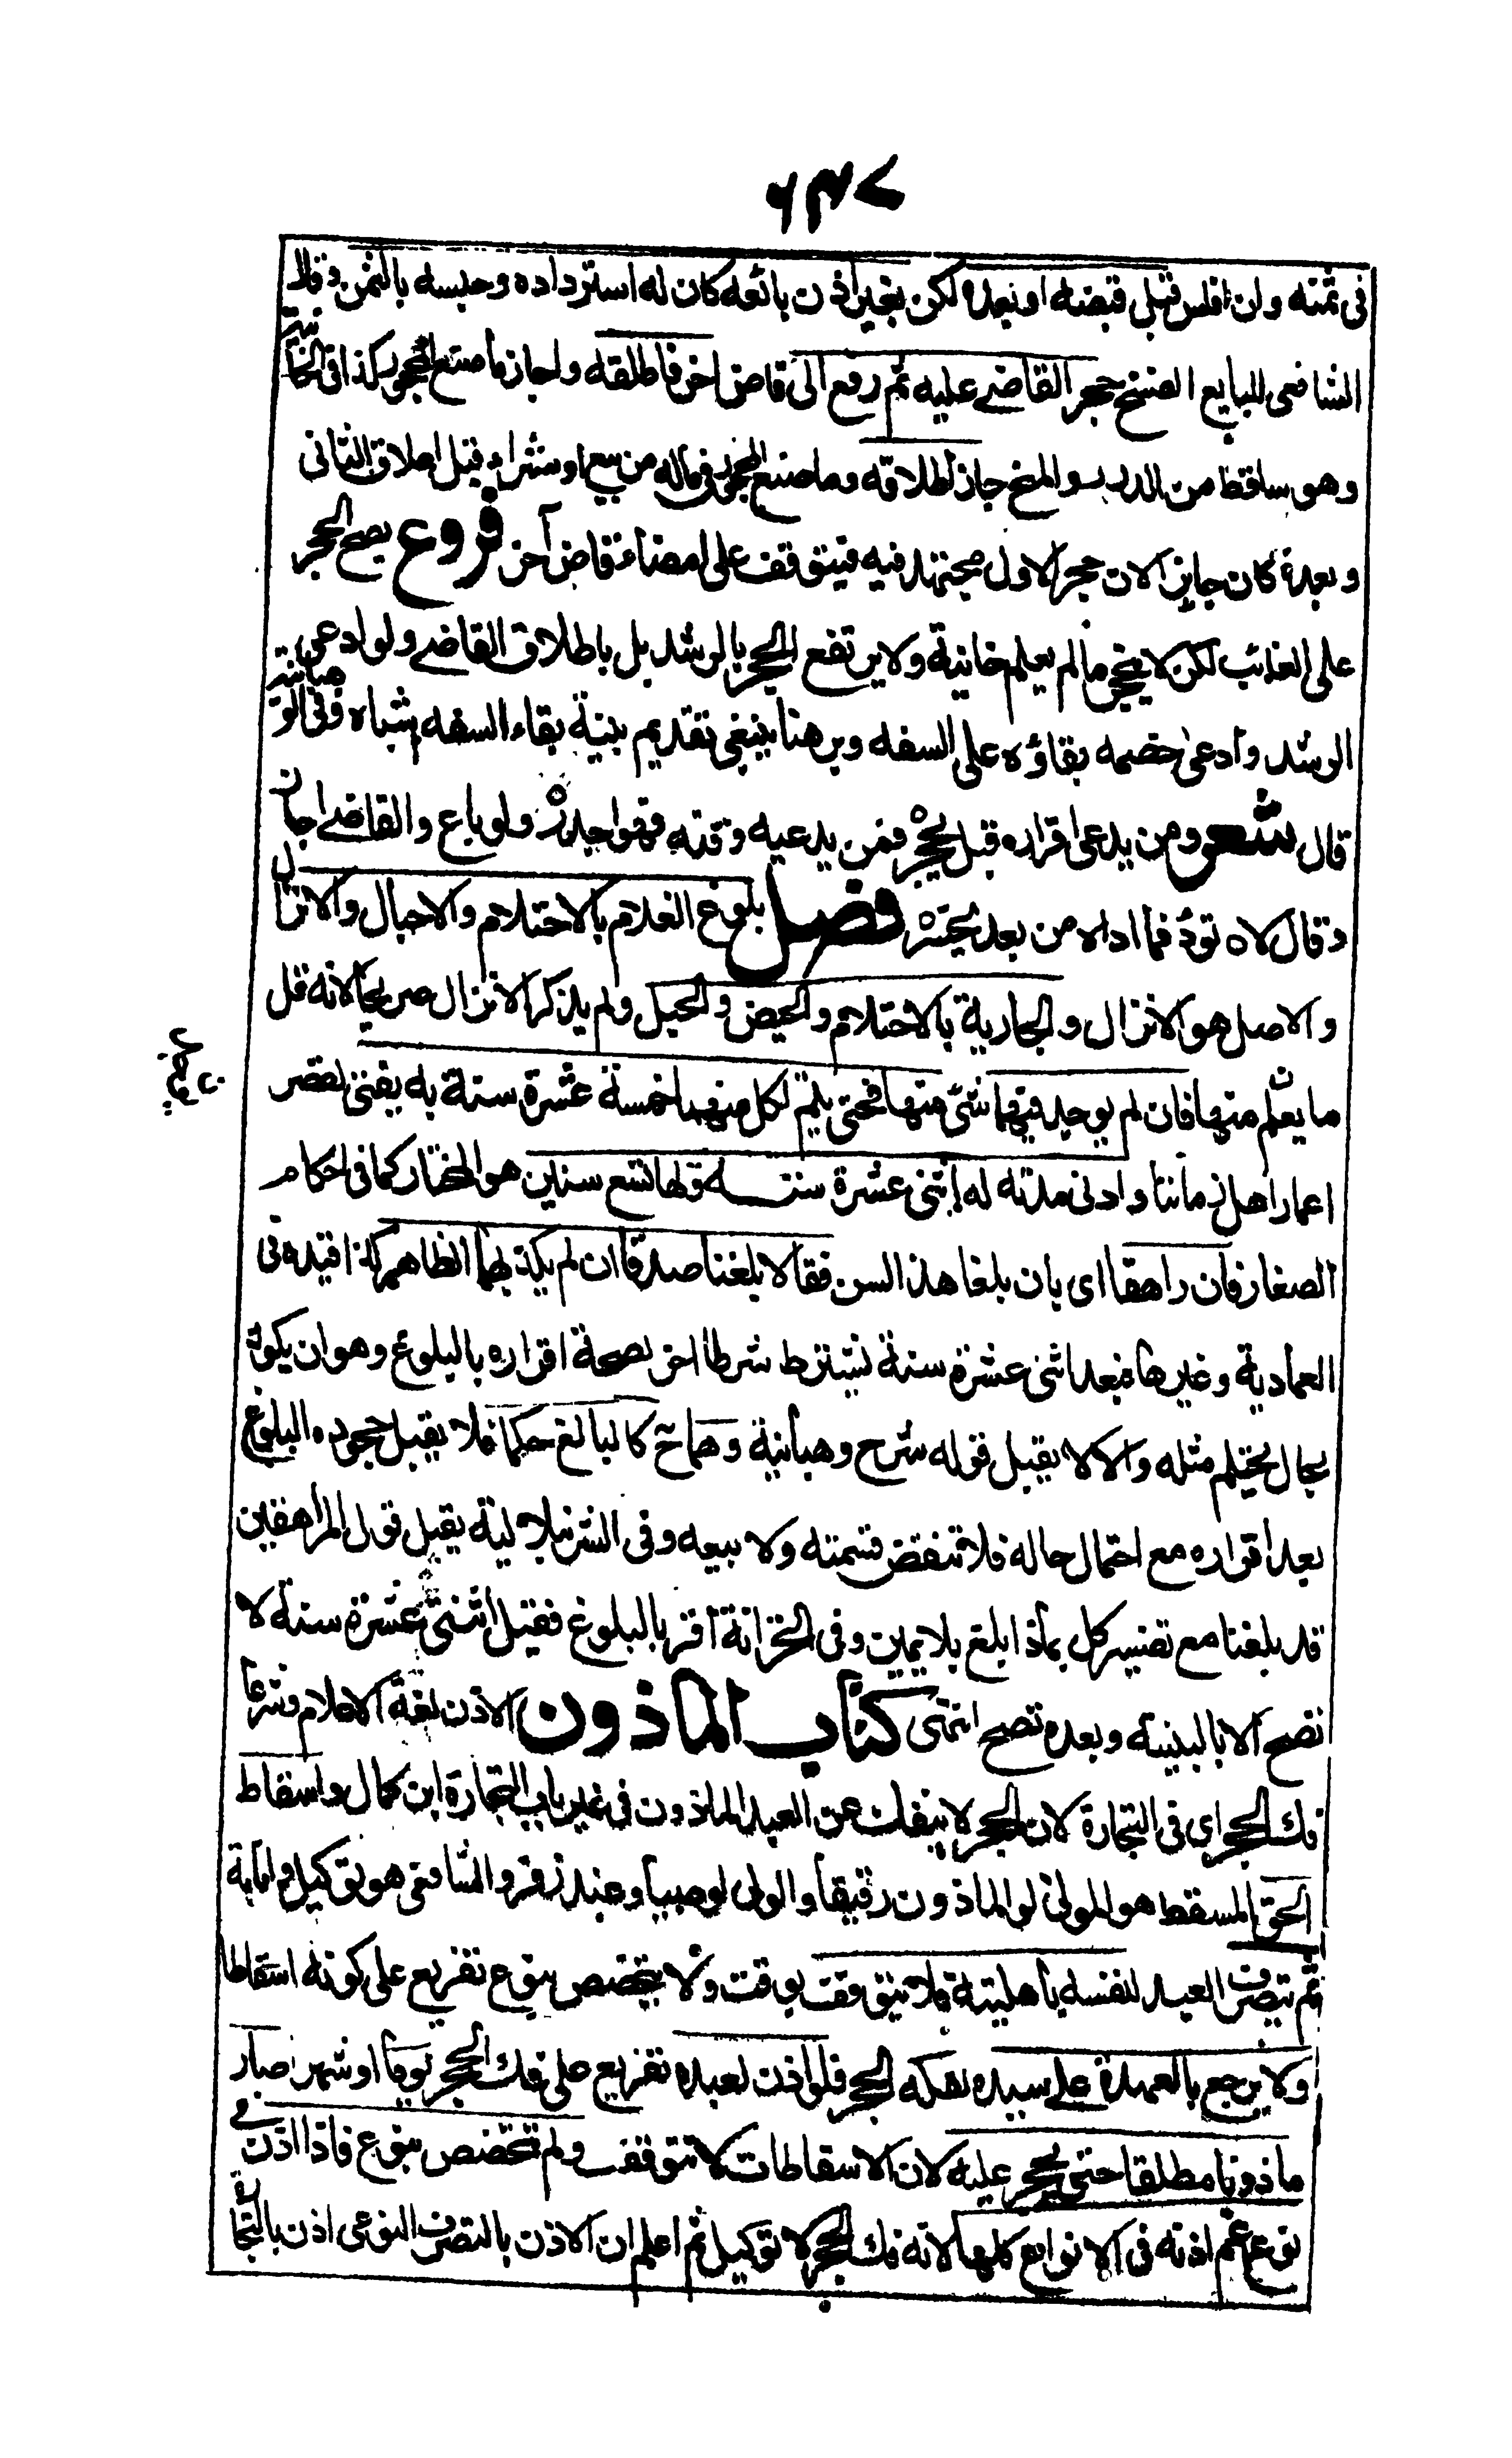 ٦٣٧
فى ثمنه وان افلس قبل قبضه او بعده لكن بغير اذن بائعه كان له استرداده وحبسه بالثمن وقال
الشافعى للبايع الفسخ حجر القاضے عليه ثم رفع الى قاض اخر فاطلقه واجاز ما صنع المحجور كذا فى الخانية
وهو ساقط من الدرر والمنح جاز اطلاقه وما صنع المحجور فى ماله من بيع او شراء قبل اطلاق الثانى
وبعده كان جايزا لان حجر الاول مجتهد فيه فيتوقف على امضاء قاض آخر فروع يصح الحجر
على الغائب لكن لا ينحجر ما لم يعلم خانية ولا يرتفع الحجر بالرشد بل باطلاق القاضے ولو ادعى
الرشد وادعى خصمه بقاؤه على السفه وبرهنا ينبغى تقديم بينة بقاء السفه اشباه وفى الوهبانية
قال شعر ومن يدعى اقراره قبل يحجر فمن يدعيه وقته فهو اجدر ولو باع والقاضے اجاز
وقال لا تؤد فما اداه من بعد يخسر فصل بلوغ الغلام بالاحتلام والاحبال والانزال
والاصل هو الانزال والجارية بالاحتلام والحيض والحبل ولم يذكر الانزال صريحا لانه قل
ما يعلم منها فان لم يوجد فيهما شئ منها فحتى يتم لكل منهما خمسة عشرة سنة به يفتى لقصر
اعمار اهل زماننا وادنى مدته له اثنى عشرة سنة ولها تسع سنين هو المختار كما فى احكام
الصغار فان راهقا اى بان بلغا هذا السن فقالا بلغنا صدقا ان لم يكذبهما الظاهر كذا قيده فى
العمادية وغيرها فبعد اثنى عشرة سنة يشترط شرط اخر لصحة اقراره بالبلوغ وهو ان يكون
بحال يحتلم مثله والا لا يقبل قوله شرح وهبانية وهما ح كالبالغ حكما فلا يقبل جحوده البلوغ
بعد اقراره مع احتمال حاله فلا تنقض قسمته ولا بيعه وفى الشرنبلالية يقبل قول المراهقين
قد بلغنا مع تفسير كل بماذا بلغ بلا يمين وفى الخزانة اقر بالبلوغ فقبل اثنتى عشرة سنة لا
تصح الا بالبينة وبعده تصح انتهى كتاب الماذون الاذن لغة الاعلام وشرعا
فك الحجر اى فى التجارة لان الحجر لا ينفك عن العبد الماذون فى غير باب التجارة ابن كمال واسقاط
الحق المسقط هو المولى لو الماذون رقيقا والولى لو صبيا وعند زفر والشافعى هو توكيل وانابة
ثم يتصرف العبد لنفسه باهليته فلا يتوقف بوقت ولا يتخصص بنوع تفريع على كونه اسقاطا
ولا يرجع بالعهدة على سيده لفكه الحجر فلو اذن لعبده تفريع على فك الحجر يوما او شهرا صار
ماذونا مطلقا حتى يحجر عليه لان الاسقاطات لا تتوقف ولم تتخصص بنوع فاذا اذن فى
نوع عم اذنه فى الانواع كلها لانه فك الحجر لا توكيل ثم اعلم ان الاذن بالتصرف النوعى اذن بالتجارة